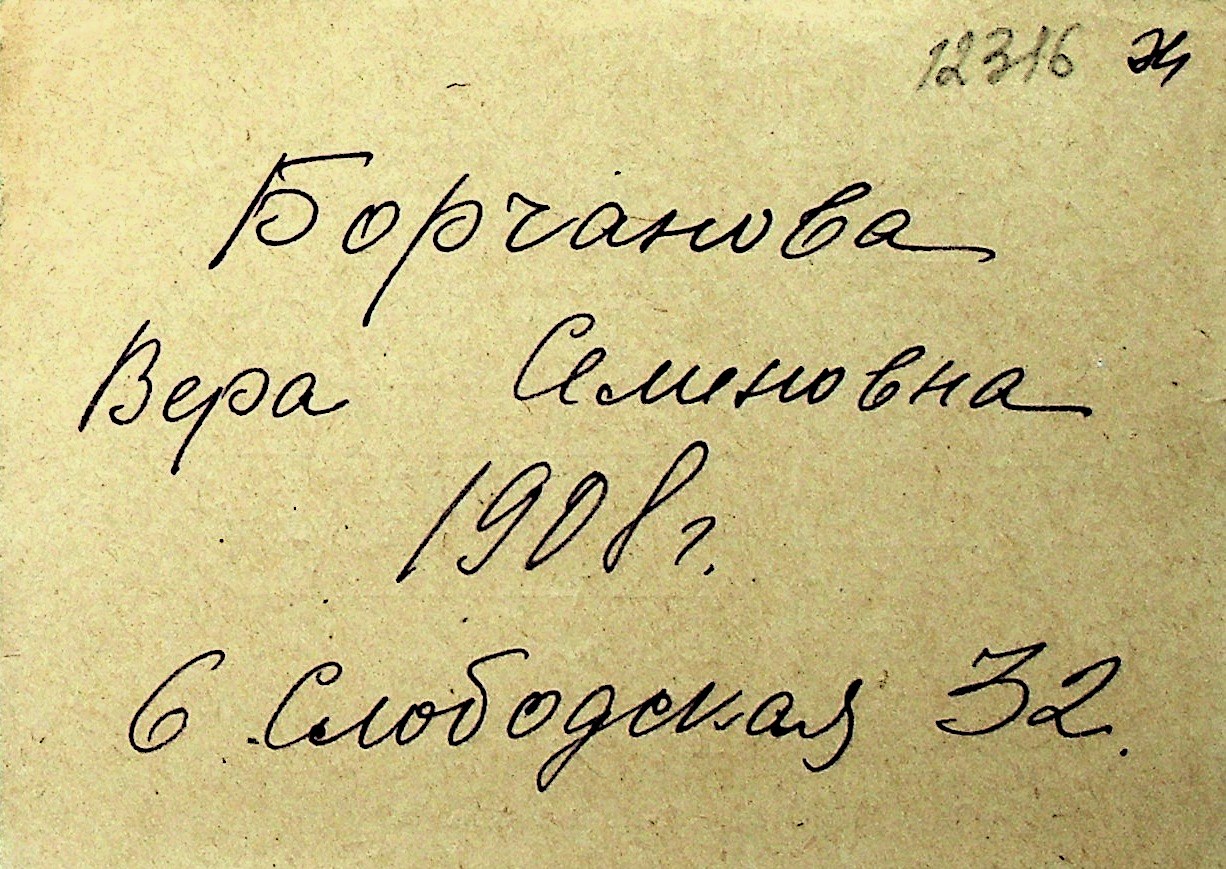 12316 Ж
Борчанова
Вера Семеновна
1908 г.
6 Слободская 32.